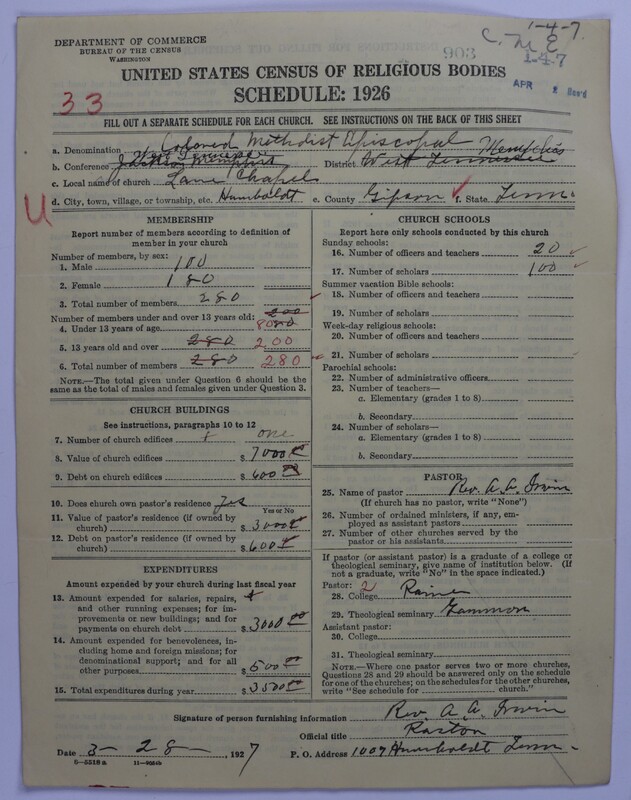 DEPARTMENT OF COMMERCE
BUREAU OF THE CENSUS
WASHINGTON
903
C. M. E
1-4-7.
1-4-7
APR 2 Rec'd
33
UNITED STATES CENSUS OF RELIGIOUS BODIES
SCHEDULE: 1926
FILL OUT A SEPARATE SCHEDULE FOR EACH CHURCH. SEE INSTRUCTIONS ON THE BACK OF THIS SHEET
a. Denomination Colored Methodist Episcopal
b. Conference West Tennessee District West Tennessee Memphis
c. Local name of church Lane Chapel
d. City, town, village, or township, etc. Humboldt e. County Gipson f. State. Tenn.
U
MEMBERSHIP
Report number of members according to definition of member in your church
Number of members, by sex:
1. Male 100
2. Female 180
3. Total number of members 280
Number of members under and over 13 years old: 200
4. Under 13 years of age 80
5. 13 years old and over 280 200
6. Total number of members 280 280
NOTE.—The total given under Question 6 should be the same as the total of males and females given under Question 3.
CHURCH BUILDINGS
See instructions, paragraphs 10 to 12
7. Number of church edifices 1 one
8. Value of church edifices $ 7000 00
9. Debt on church edifices $ 600 00
10. Does church own pastor's residence Yes
Yes or No
11. Value of pastor's residence (if owned by church) $ 3000
12. Debt on pastor's residence (if owned by church) $ 600
EXPENDITURES
Amount expended by your church during last fiscal year
13. Amount expended for salaries, repairs, and other running expenses; for improvements or new buildings; and for payments on church debt $ 3000 00
14. Amount expended for benevolences, including home and foreign missions; for denominational support; and for all other purposes $ 500 00
15. Total expenditures during year $ 3500 00
CHURCH SCHOOLS
Report here only schools conducted by this church
Sunday schools:
16. Number of officers and teachers 20
17. Number of scholars 100
Summer vacation Bible schools:
18. Number of officers and teachers
19. Number of scholars
Week-day religious schools:
20. Number of officers and teachers
21. Number of scholars
Parochial schools:
22. Number of administrative officers
23. Number of teachers—
a. Elementary (grades 1 to 8)
b. Secondary
24. Number of scholars—
a. Elementary (grades 1 to 8)
b. Secondary
PASTOR
25. Name of pastor Rev. A. A. Irwin
(If church has no pastor, write "None")
26. Number of ordained ministers, if any, employed as assistant pastors
27. Number of other churches served by the pastor or his assistants
If pastor (or assistant pastor) is a graduate of a college or theological seminary, give name of institution below. (If not a graduate, write "No" in the space indicated.)
Pastor: 2
28. College Raine
29. Theological seminary Gammon
Assistant pastor:
30. College
31. Theological seminary
NOTE.—Where one pastor serves two or more churches, Questions 28 and 29 should be answered only on the schedule for one of the churches; on the schedules for the other churches, write "See schedule for church."
Signature of person furnishing information Rev. A. A. Irwin
Official title Pastor
Date 3- 28 -, 1927 P. O. Address 1007 Humboldt Tenn-
8-5518 a 11-9034b